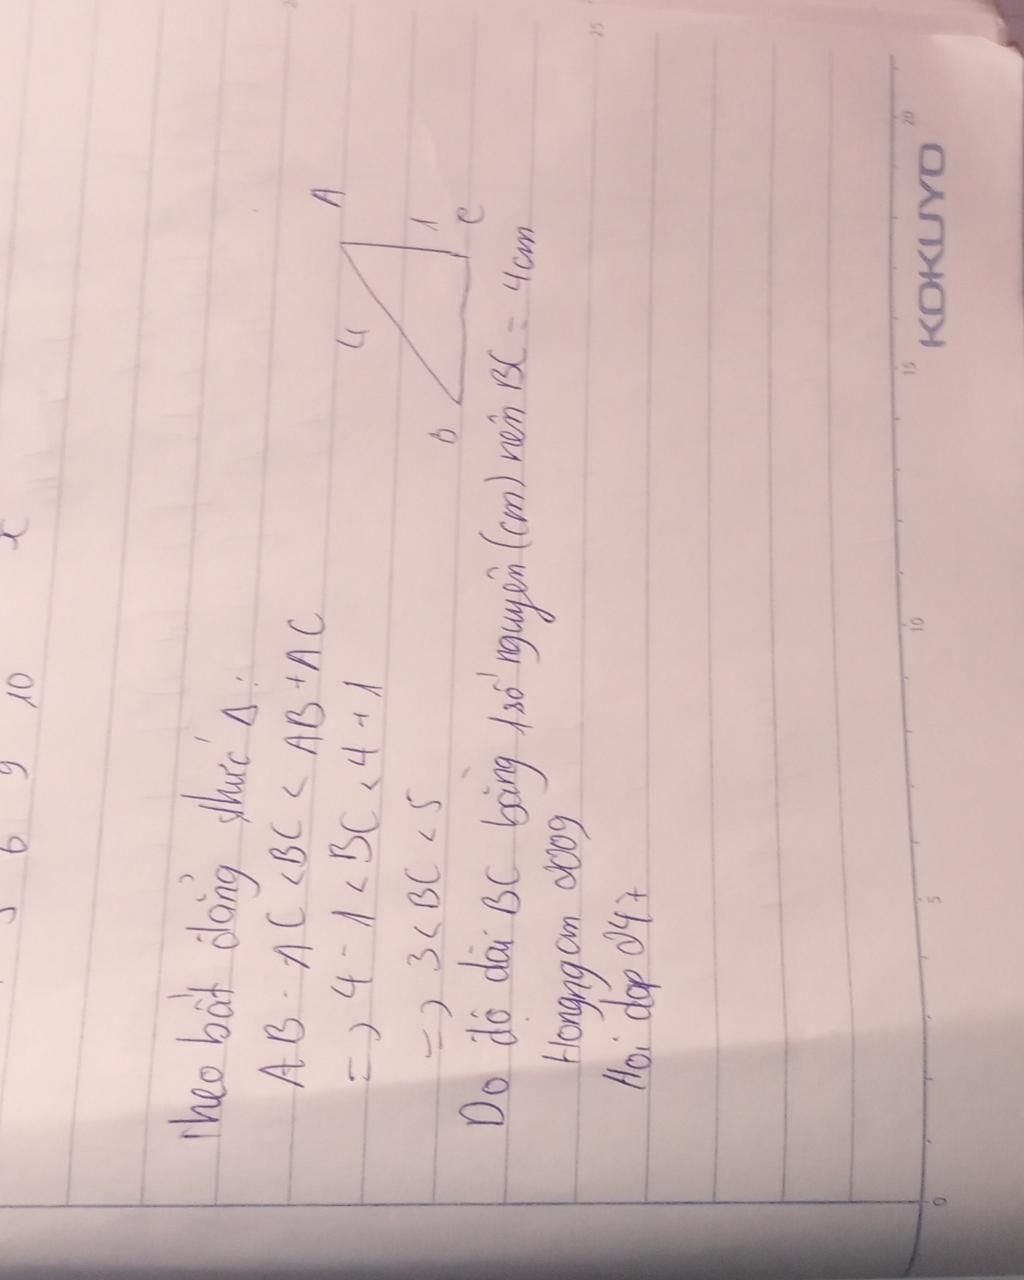 6 9 10 x
Theo bất đẳng thức Δ:
AB - AC < BC < AB + AC
=> 4 - 1 < BC < 4 + 1
=> 3 < BC < 5
A
4
1
B
C
Do độ dài BC bằng 1 số nguyên (cm) nên BC = 4cm
Hongngan 2009
Hoi dap 247
0 5 10 15 20
25
KOKUYO